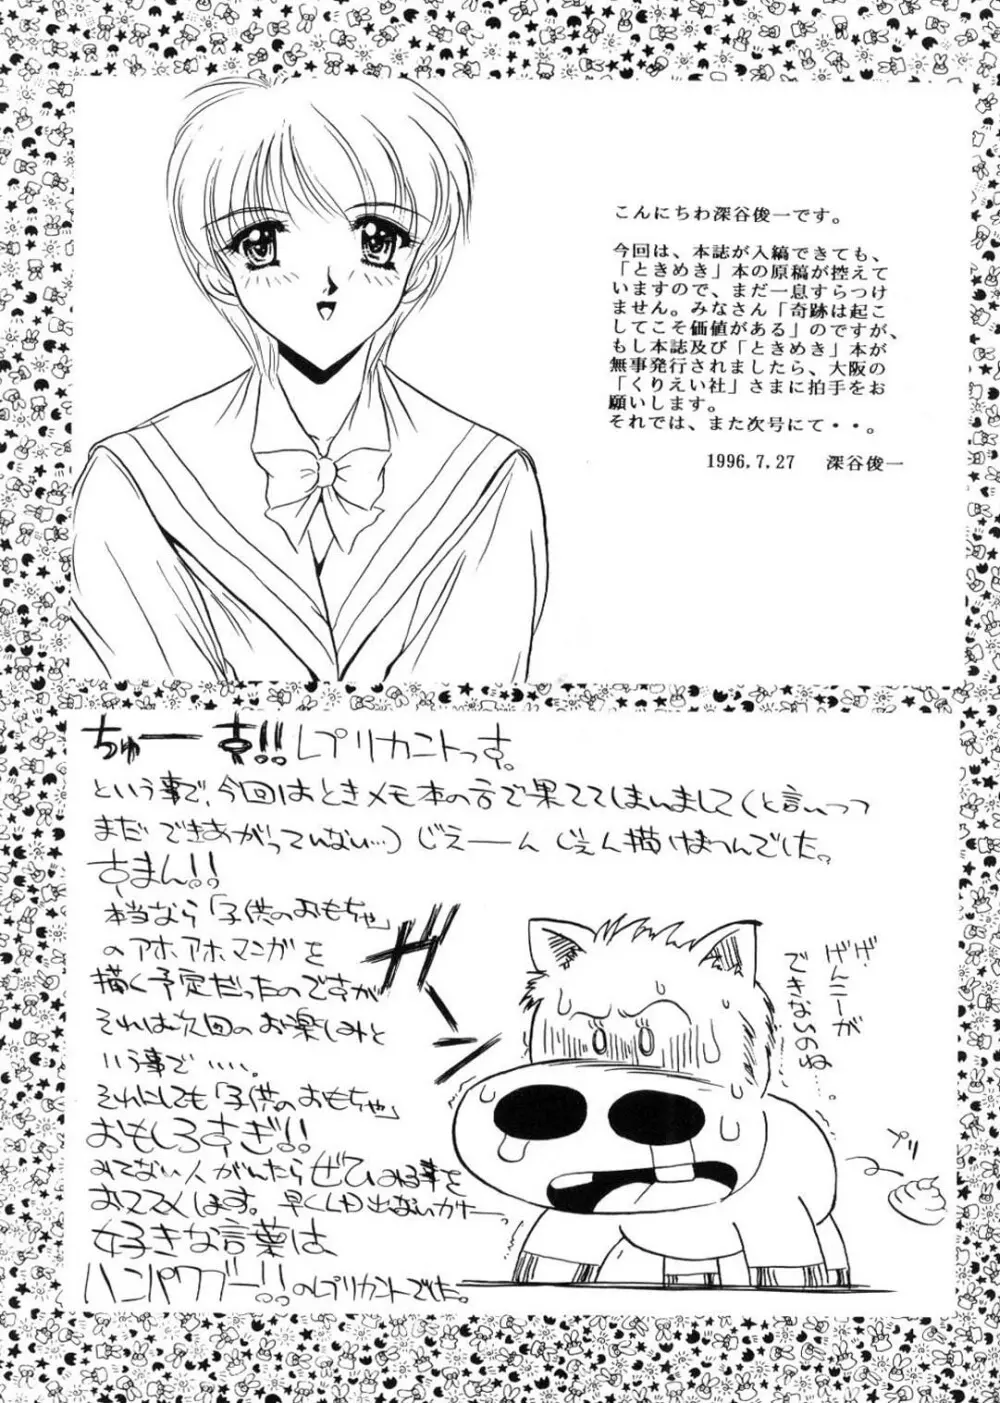 こんにちわ深谷俊一です。
今回は、本誌が入稿できても、
「ときめき」本の原稿が控えて
いますので、まだ一息すらつけ
ません。みなさん「奇跡は起こ
してこそ価値がある」のですが、
もし本誌及び「ときめき」本が
無事発行されましたら、大阪の
「くりえい社」さまに拍手をお
願いします。
それでは、また次号にて・・。
1996.7.27 深谷俊一
ちゅーす!!レプリカントっす。
という事で、今回はときメモ本の方で果ててしまいまして(と言いつつ
まだできあがっていない…)じえーんじえん描けませんでした。
すまん!!
本当なら「子供のおもちゃ」
のアホアホマンガを
描く予定だったのですが
それは次回のお楽しみと
いう事で・・・・・。
それにしても「子供のおもちゃ」
おもしろすぎ!!
みてない人がいたらぜひみる事を
おススメします。早くLD出ないかナー。
好きな言葉は、
ハンパワブー!!のレプリカントでした。
ガーン
げ、げんこーが
できないのね…
プリ